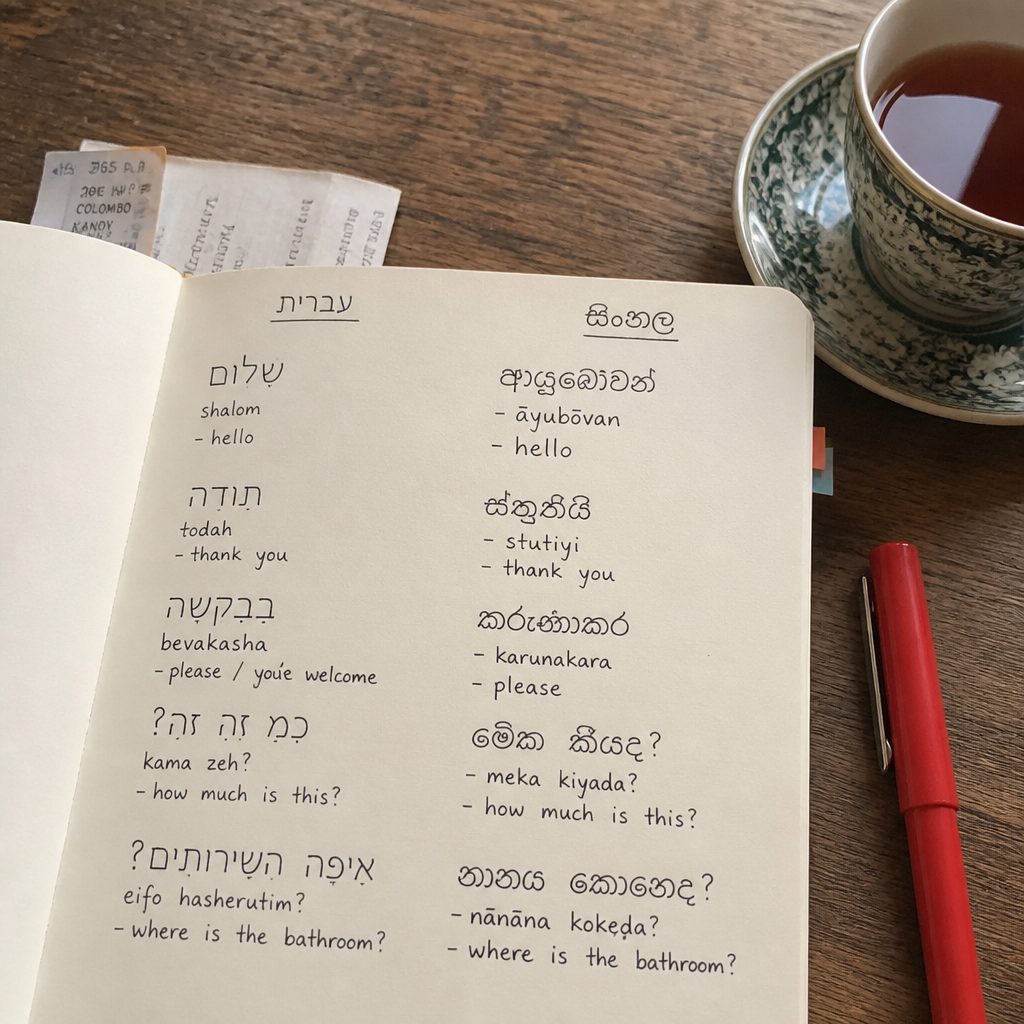 COLOMBO
KANDY
עברית
שָׁלוֹם
shalom
- hello
תוֹדִה
todah
- thank you
בִּבִקשָׁה
bevakasha
- please / you'e welcome
כִּמַ זִה זֹה?
kama zeh?
- how much is this?
אִיפָה הִשִׁירותִים?
eifo hasherutim?
- where is the bathroom?
සිංහල
ආයුබෝවන්
- āyubōvan
- hello
ස්තුතියි
- stutiyi
- thank you
කරුණාකර
- karunakara
- please
මේක කීයද?
- meka kiyada?
- how much is this?
නානය කොනෙද?
- nānāna kokẹḍa?
- where is the bathroom?